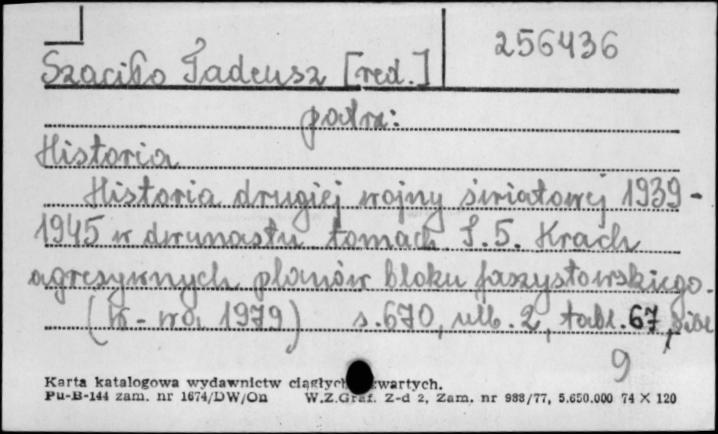 256436
Szaciło Tadeusz [red.]
patrz:
Historia
Historia drugiej wojny światowej 1939-
1945 w dwunastu tomach T.5. Krach
agresywnych planów bloku faszystowskiego.
(W-wa 1979) s.670, nlb. 2, tabl. 67,
9
Karta katalogowa wydawnictw ciągłych zwartych.
Pu-B-144 zam. nr 1674/DW/On W.Z.Graf. Z-d 2, Zam. nr 988/77, 5.650.000 74 X 120